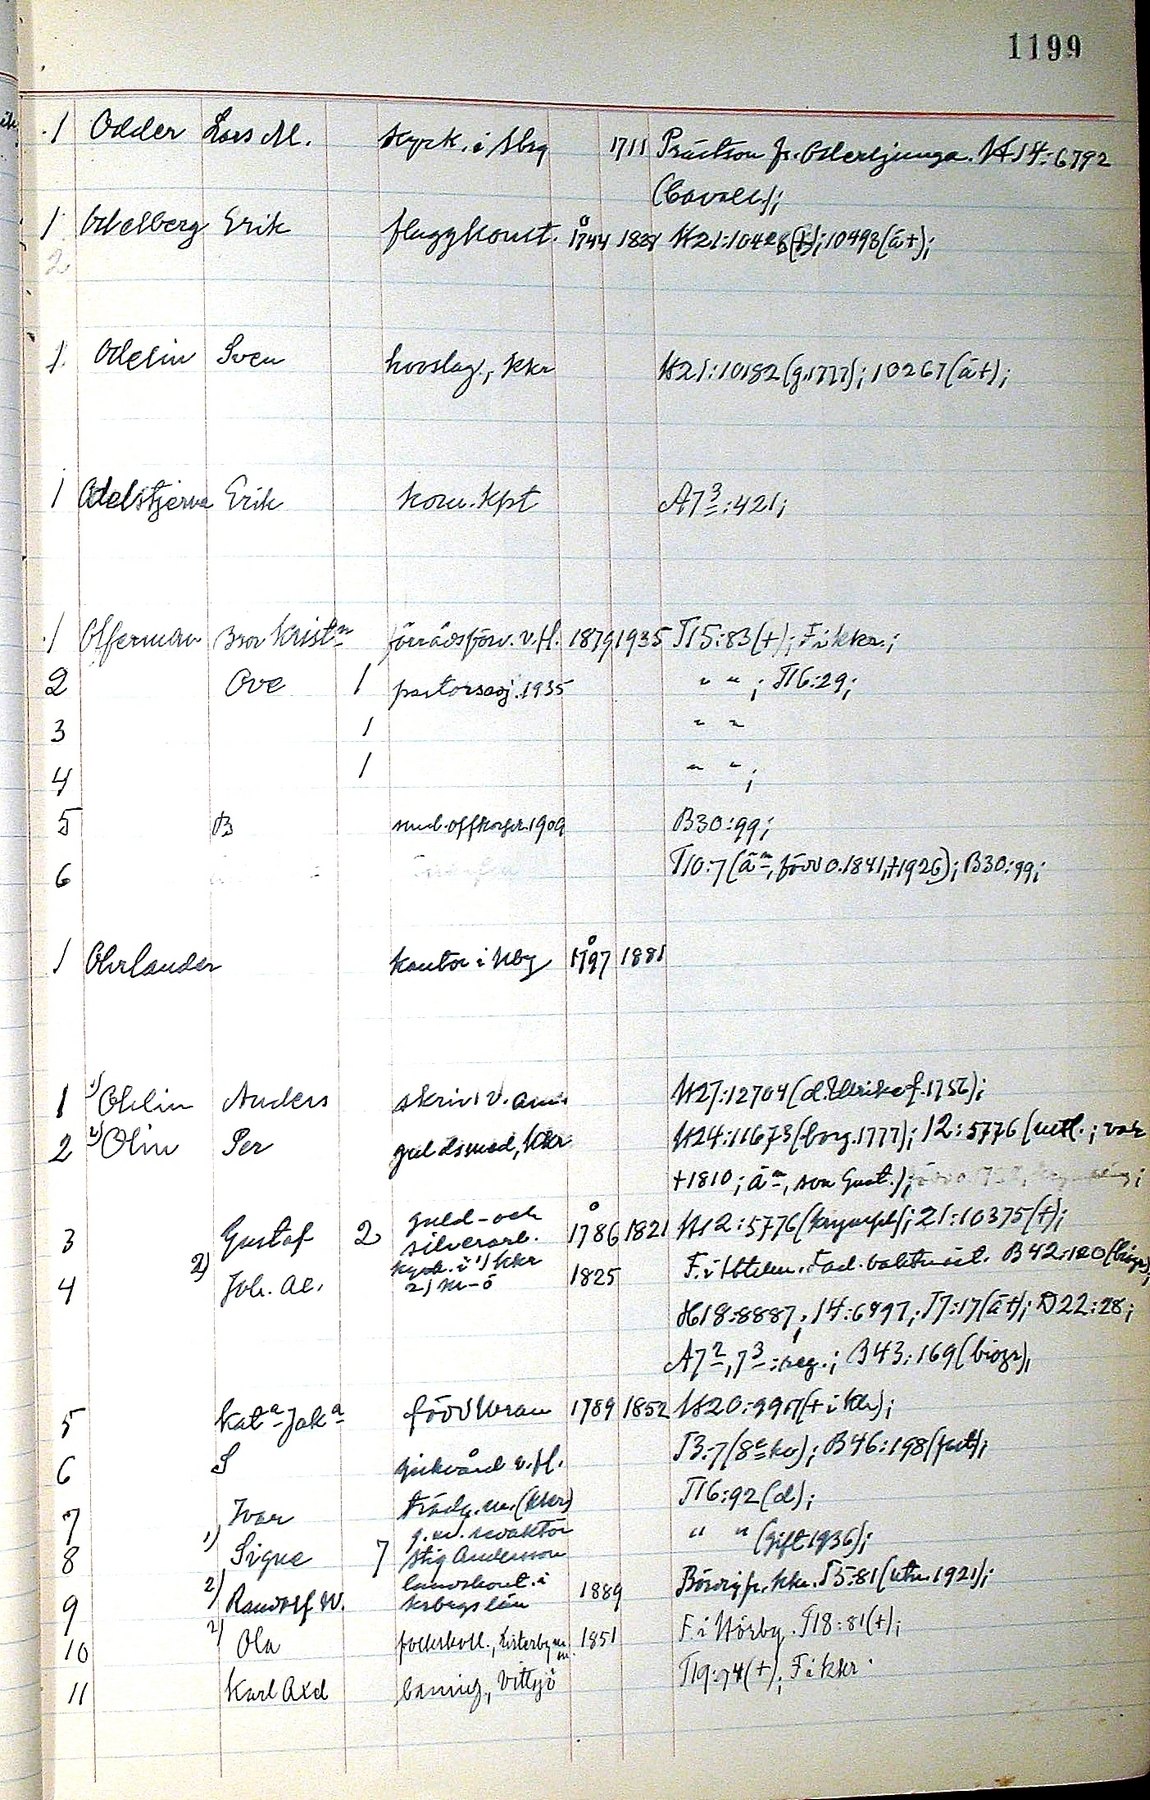 1199
1 Odder Lars M. kyrk. i Åbg 1711 Prästson fr. Osterljunga. H14:6792
(Cavall.);
1 Odelberg Erik flaggkonst. 1744 H21:10498(å+);
2
1 Odelin Sven hovslag., kkr H21:10182(g.1777); 10267(å+);
1 Odelstjerna Erik kom.kpt A7³:421;
1 Offerman Bror Kristn förrådsförv. v.fl. 1879 1935 T15:83(+); F. i kkr.;
2 Ove 1 pastorsadj. 1935 " " ; T16:29;
3 1 " "
4 1 " " ;
5 B 1909 B30:99;
6 T10:7(ån, född O.1841,+1926); B30:99;
1 Ohrlander kantor i Hby 1797 1881
1 1) Ohlin Anders skriv. v. am. H27:12704(d. Ulrika f.1756);
2 2) Olin Per guldsmed, kkr H24:11673(borg.1777); 12:5776(utl.; var
+1810; ån, son Gust.);
3 Gustaf 2 guld- och
silverarb. 1786 1821 H12:5776(krympl); 21:10375(+);
4 2) Joh. Al. kyrk. i 1) kkr
2) M-ö 1825 F. i Sthlm. Fad. vaktmäst. B42:120(biogr);
H18:8887; 14:6997; T7:17(å+); D22:28;
A7², 7³:reg.; B43:169(biogr),
5 Kata Joka född Uran 1789 1852 H20:9917(+ i kkr);
6 S sjukvård v. fl. T3:7(8e kv); B46:198(fest);
7 Ivar trädg.m. (kkr) T16:92(d);
8 1) Signe 7 g.m. redaktör
Stig Andersson " " (gift 1936);
9 2) Randolf W. landskont. i
Ksbergs län 1889 Bördig fr. kkr. T5:81(utn.1921);
10 2) Ola folkskoll., Listerby m.m. 1851 F. i Hörby. T18:81(+);
11 Karl Axel baning., Vittsjö T19:74(+); F i kkr.